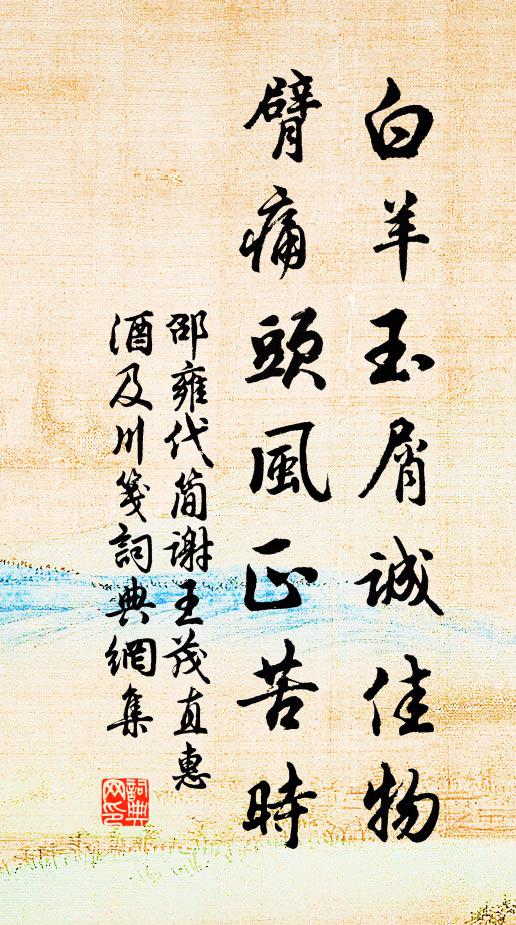 白羊玉屑誠佳物
臂痛頭風正苦時
邵雍代简謝王茂直惠
酒及川箋詞典網集
詞典网印